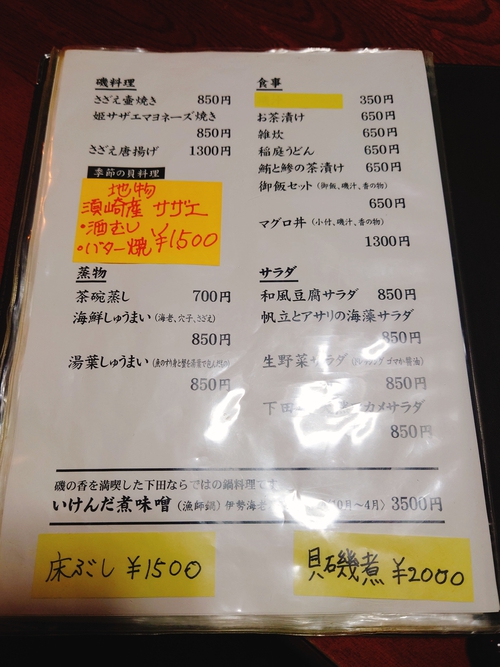 磯料理
さざえ壷焼き 850円
姫サザエマヨネーズ焼き
850円
さざえ唐揚げ 1300円
季節の貝料理
地物
須崎産 サザエ
・酒むし
・バター焼 ¥1500
蒸物
茶碗蒸し 700円
海鮮しゅうまい（海老、穴子、さざえ）
850円
湯葉しゅうまい
850円
食事
350円
お茶漬け 650円
雑炊 650円
稲庭うどん 650円
鮪と鯵の茶漬け 650円
御飯セット（御飯、磯汁、香の物）
650円
マグロ丼（小付、磯汁、香の物）
1300円
サラダ
和風豆腐サラダ 850円
帆立とアサリの海藻サラダ
850円
生野菜サラダ
850円
下田 カメサラダ
850円
磯の香を満喫した下田ならではの鍋料理です
いけんだ煮味噌（漁師鍋）伊勢海老 10月～4月） 3500円
床ぶし ¥1500
貝磯煮 ¥2000